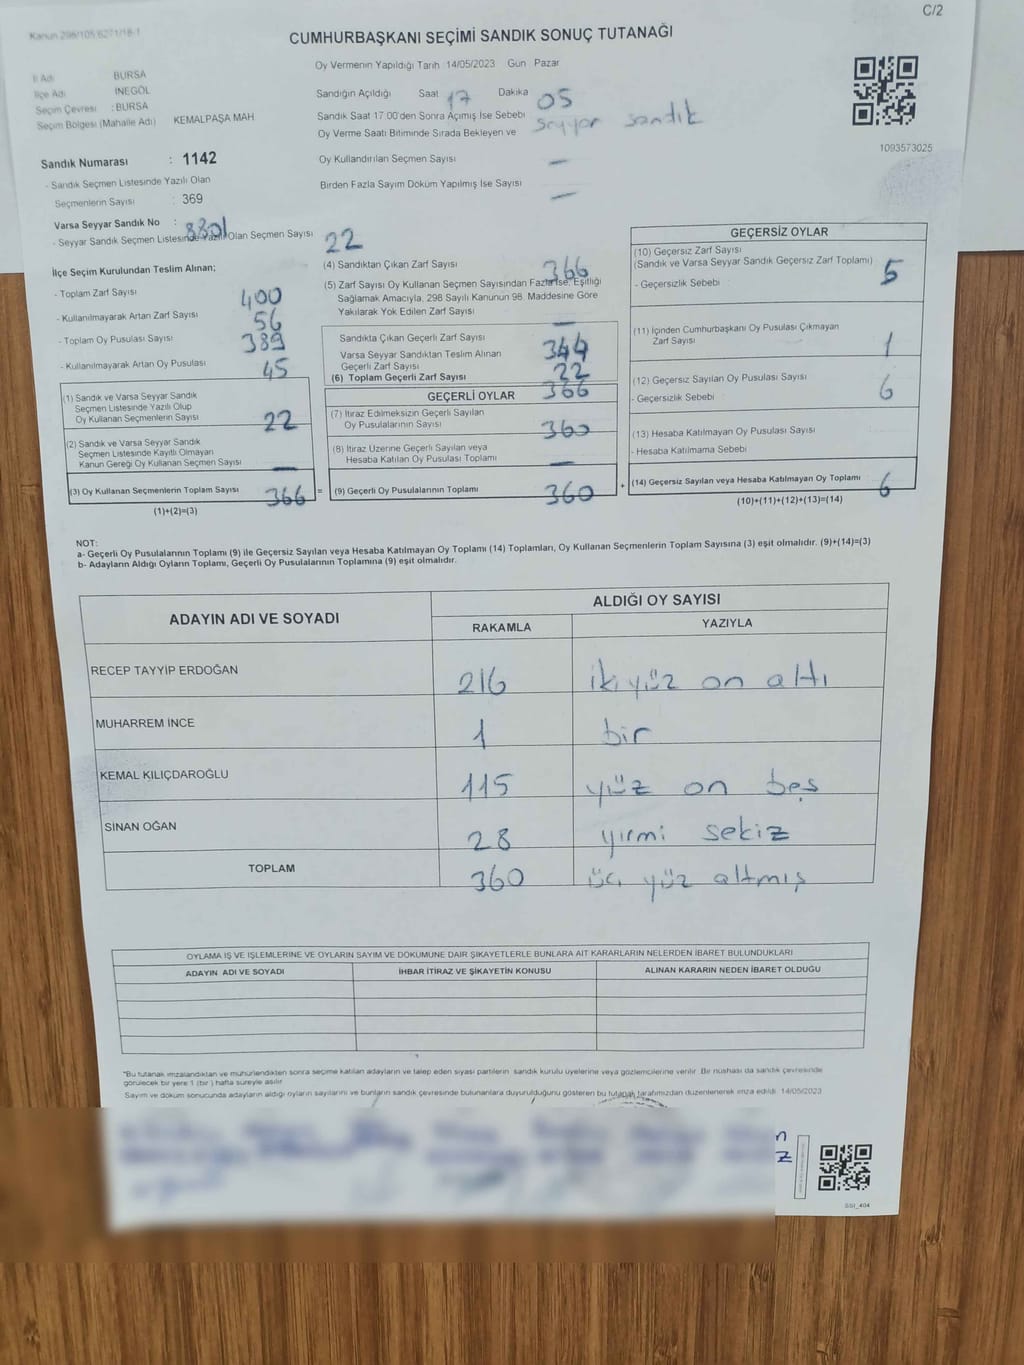 C/2
Kanun 298/105 6271/18-1
CUMHURBAŞKANI SEÇİMİ SANDIK SONUÇ TUTANAĞI
Oy Vermenin Yapıldığı Tarih :14/05/2023 Gün : Pazar
İl Adı BURSA
İlçe Adı İNEGÖL
Seçim Çevresi : BURSA
Seçim Bölgesi (Mahalle Adı) KEMALPAŞA MAH
Sandığın Açıldığı Saat 17 Dakika 05
Sandık Saat 17.00'den Sonra Açılmış İse Sebebi seyyar sandık
Oy Verme Saati Bitiminde Sırada Bekleyen ve
Oy Kullandırılan Seçmen Sayısı —
Birden Fazla Sayım Döküm Yapılmış İse Sayısı —
1093573025
Sandık Numarası : 1142
- Sandık Seçmen Listesinde Yazılı Olan
Seçmenlerin Sayısı : 369
Varsa Seyyar Sandık No : 8801
- Seyyar Sandık Seçmen Listesinde Yazılı Olan Seçmen Sayısı 22
İlçe Seçim Kurulundan Teslim Alınan;
- Toplam Zarf Sayısı 400
- Kullanılmayarak Artan Zarf Sayısı 56
- Toplam Oy Pusulası Sayısı 389
- Kullanılmayarak Artan Oy Pusulası 45
(1) Sandık ve Varsa Seyyar Sandık
Seçmen Listesinde Yazılı Olup
Oy Kullanan Seçmenlerin Sayısı 22
(2) Sandık ve Varsa Seyyar Sandık
Seçmen Listesinde Kayıtlı Olmayan
Kanun Gereği Oy Kullanan Seçmen Sayısı —
(3) Oy Kullanan Seçmenlerin Toplam Sayısı 366 =
(1)+(2)=(3)
(4) Sandıktan Çıkan Zarf Sayısı 366
(5) Zarf Sayısı Oy Kullanan Seçmen Sayısından Fazla İse, Eşitliği
Sağlamak Amacıyla, 298 Sayılı Kanunun 98. Maddesine Göre
Yakılarak Yok Edilen Zarf Sayısı —
Sandıkta Çıkan Geçerli Zarf Sayısı 344
Varsa Seyyar Sandıktan Teslim Alınan
Geçerli Zarf Sayısı 22
(6) Toplam Geçerli Zarf Sayısı 366
GEÇERLİ OYLAR
(7) İtiraz Edilmeksizin Geçerli Sayılan
Oy Pusulalarının Sayısı 360
(8) İtiraz Üzerine Geçerli Sayılan veya
Hesaba Katılan Oy Pusulası Toplamı —
(9) Geçerli Oy Pusulalarının Toplamı 360 +
GEÇERSİZ OYLAR
(10) Geçersiz Zarf Sayısı
(Sandık ve Varsa Seyyar Sandık Geçersiz Zarf Toplamı) 5
- Geçersizlik Sebebi :
(11) İçinden Cumhurbaşkanı Oy Pusulası Çıkmayan
Zarf Sayısı 1
(12) Geçersiz Sayılan Oy Pusulası Sayısı 6
- Geçersizlik Sebebi :
(13) Hesaba Katılmayan Oy Pusulası Sayısı
- Hesaba Katılmama Sebebi :
(14) Geçersiz Sayılan veya Hesaba Katılmayan Oy Toplamı 6
(10)+(11)+(12)+(13)=(14)
NOT:
a- Geçerli Oy Pusulalarının Toplamı (9) ile Geçersiz Sayılan veya Hesaba Katılmayan Oy Toplamı (14) Toplamları, Oy Kullanan Seçmenlerin Toplam Sayısına (3) eşit olmalıdır. (9)+(14)=(3)
b- Adayların Aldığı Oyların Toplamı, Geçerli Oy Pusulalarının Toplamına (9) eşit olmalıdır.
ADAYIN ADI VE SOYADI ALDIĞI OY SAYISI
RAKAMLA YAZIYLA
RECEP TAYYİP ERDOĞAN 216 iki yüz on altı
MUHARREM İNCE 1 bir
KEMAL KILIÇDAROĞLU 115 yüz on beş
SİNAN OĞAN 28 yirmi sekiz
TOPLAM 360 üç yüz altmış
OYLAMA İŞ VE İŞLEMLERİNE VE OYLARIN SAYIM VE DÖKÜMÜNE DAİR ŞİKAYETLERLE BUNLARA AİT KARARLARIN NELERDEN İBARET BULUNDUKLARI
ADAYIN ADI VE SOYADI İHBAR İTİRAZ VE ŞİKAYETİN KONUSU ALINAN KARARIN NEDEN İBARET OLDUĞU
*Bu tutanak imzalandıktan ve mühürlendikten sonra seçime katılan adayların ve talep eden siyasi partilerin sandık kurulu üyelerine veya gözlemcilerine verilir. Bir nüshası da sandık çevresinde
görülecek bir yere 1 (bir ) hafta süreyle asılır.
Sayım ve döküm sonucunda adayların aldığı oyların sayılarını ve bunların sandık çevresinde bulunanlara duyurulduğunu gösteren bu tutanak tarafımızdan düzenlenerek imza edildi. 14/05/2023
n
z
SSI_404